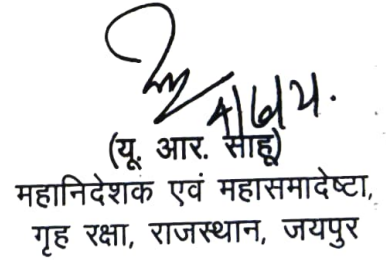 (यू. आर. साहू)
महानिदेशक एवं महासमादेष्टा,
गृह रक्षा, राजस्थान, जयपुर